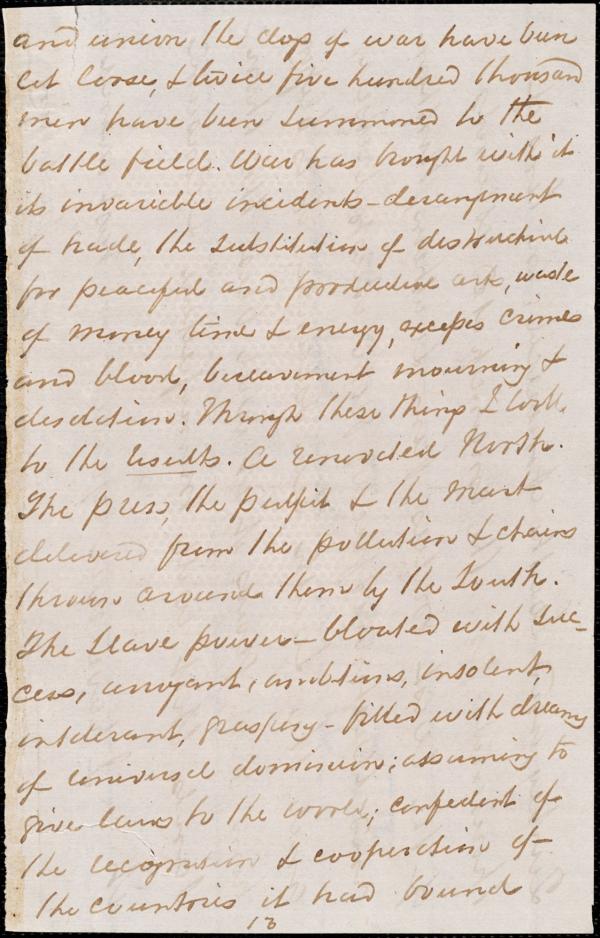 and union the dogs of war have been
let loose, & twice five hundred thousand
men have been summoned to the
battle field. War has brought with it
its invariable incidents - derangement
of trade, the substitution of destructive
for peaceful and productive arts, waste
of money time & energy, excesses crimes
and blood, bereavement mourning &
desolation. Through these things I look
to the results. A renovated North.
The press, the pulpit & the mart
delivered from the pollution & chains
thrown around them by the South.
The Slave power - bloated with suc-
cess, arrogant, ambitious, insolent,
intolerant, grasping - filled with dreams
of universal dominion; assuming to
give laws to the world; confident of
the recognition & cooperation of
the countries it had bound
13